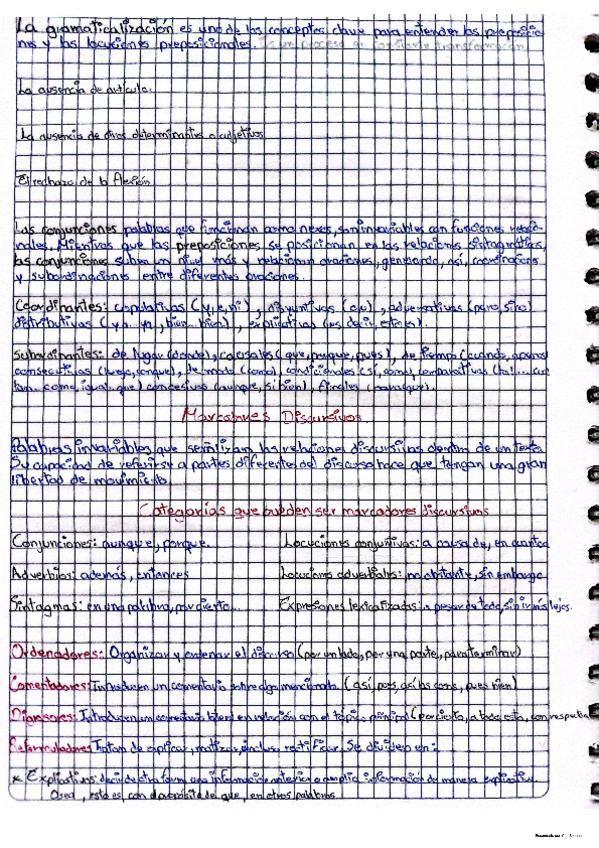 La gramaticalización es uno de los conceptos clave para entender las preposicio
nes y las locuciones preposicionales. Es un proceso en constante transformación
La ausencia de artículo.
La ausencia de otros determinantes o adjetivos
El rechazo de la flexión
Las conjunciones palabras que funcionan como nexos, son invariables con funciones relacio-
nales. Mientras que las preposiciones se posicionan en las relaciones sintagmáticas,
las conjunciones suben un nivel más y relacionan oraciones, generando, así, coordinaciones
y subordinaciones entre diferentes oraciones.
Coordinantes: copulativas (y, e, ni), disyuntivas (o, u), adversativas (pero, sino)
distributivas (ya.. ya, bien.. bien), explicativas (es decir, esto es).
Subordinantes: de lugar (donde), causales (que, porque, pues), de tiempo (cuando, apenas
consecutivas (luego, conque), de modo (como), condicionales (si, como), comparativas
como, igual que) concesivas (aunque, si bien), finales
Marcadores Discursivos
Palabras invariables que señalizan las relaciones discursivas dentro de un texto.
Su capacidad de referirse a partes diferente del discurso hace que tengan una gran
libertad de movimiento
Categorías que pueden ser marcadores discursivos
Conjunciones: aunque, porque. Locuciones conjuntivas: a causa de, en cuanto a
Adverbios: además, entonces Locuciones adverbiales: no obstante, sin embargo
Sintagmas: en una palabra, por cierto.. Expresiones lexicalizadas: a pesar de todo, sin ir más lejos.
Ordenadores: Organizar y ordenar el discurso (por un lado, por una parte, para terminar)
Comentadores: Introducen un comentario sobre algo mencionado. (así, pues, así las cosas, pues bien)
Digresores: Introducen un comentario lateral en relación con el tópico principal (por cierto, a todo esto, con respecto a
Reformuladores Tratan de explicar, matizar, incluso rectificar. Se dividen en:
* Explicativos: decir de otra forma una información anterior o amplía información de manera explicativa.
O sea, esto es, con el propósito de que, en otras palabras